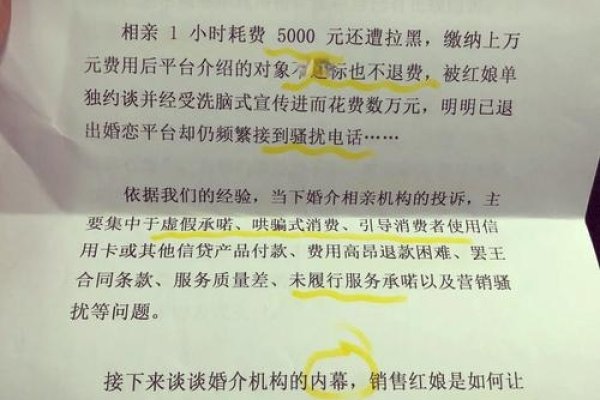 相亲 1 小时耗费 5000 元还遭拉黑，缴纳上万
元费用后平台介绍的对象不达标也不退费，被红娘单
独约谈并经受洗脑式宣传进而花费数万元，明明已退
出婚恋平台却仍频繁接到骚扰电话……
依据我们的经验，当下婚介相亲机构的投诉，主
要集中于虚假承诺、哄骗式消费、引导消费者使用信
用卡或其他信贷产品付款、费用高昂退款困难、罢王
合同条款、服务质量差、未履行服务承诺以及营销骚
扰等问题。
接下来谈谈婚介机构的内幕，销售红娘是如何让